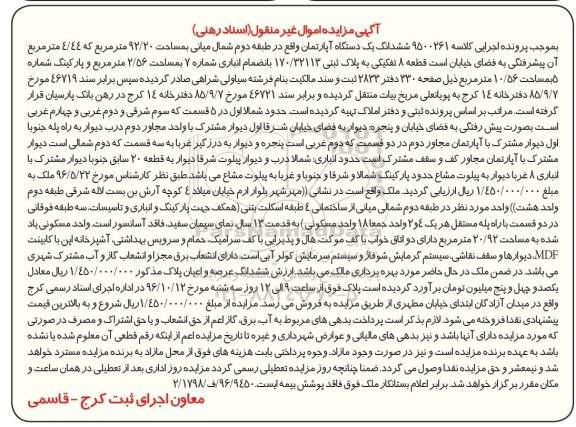 آگهی مزایده اموال غیر منقول(اسناد رهنی)
بموجب پرونده اجرایی کلاسه ۹۵۰۰۲۶۱ ششدانگ یک دستگاه آپارتمان واقع در طبقه دوم شمال میانی بمساحت ۹۲/۲۰ مترمربع که ۴/۴۴ مترمربع
آن پیشرفتگی به فضای خیابان است قطعه ۸ تفکیکی به پلاک ثبتی ۱۷۰/۳۲۱۱۳ بانضمام انباری شماره ۷ بمساحت ۲/۵۶ مترمربع و پارکینگ شماره
۵بمساحت ۱۰/۵۶ مترمربع ذیل صفحه ۳۳۰ دفتر ۲۸۳۳ ثبت و سند مالکیت بنام فرشته سیاولی شراهی صادر گردیده سپس برابر سند ۴۶۷۱۹ مورخ
۸۵/۹/۷ دفترخانه ۱۴ کرج به پویانعلی مریخ بیات منتقل گردیده و برابر سند ۴۶۷۲۱ مورخ ۸۵/۹/۷ دفترخانه ۱۴ کرج در رهن بانک پارسیان قرار
گرفته است. مراتب بر اساس پرونده ثبتی و دفتر املاک تهیه گردیده است. حدود شمالا اول در ۵ قسمت که سوم شرقی و دوم غربی و چهارم غربی
است بصورت پیش رفتگی به فضای خیابان و پنجره: دیوار به فضای خیابان شرقا اول دیوار مشترک با واحد مجاور دوم درب دیوار به راه پله جنوبا
اول دیوار مشترک با آپارتمان مجاور دوم در دو قسمت که دوم غربی است پنجره و دیوار به درز گیر غربا به سه قسمت که دوم شمالی است دیوار
مشترک با آپارتمان مجاور کف و سقف مشترک است حدود انباری: شمالا درب و دیوار پیلوت شرقا دیوار به قطعه ۲۰ سابق جنوبا دیوار مشترک با
انباری ۸ غربا دیوار به پیلوت مشاع حدود پارکینگ شمالا و شرقا و جنوبا و غربا به پیلوت مشاع می باشد. طبق نظر کارشناس مورخ ۹۶/۵/۲۲ ملک به
مبلغ ۱/۴۵۰/۰۰۰/۰۰۰ ریال ارزیابی گردید. ملک واقع است در نشانی ((مهرشهر بلوار ارم خیابان میلاد ۴ کوچه آرش بن بست لاله شرقی طبقه دوم
واحد هشت)) واحد مورد نظر در طبقه دوم شمالی میانی از ساختمانی ۴ طبقه اسکلت بتنی (همکف جهت پارکینگ و انباری و تاسیسات، سه طبقه فوقانی
در دو قسمت با راه پله مستقل هر یک ۴و۲ واحد جمعا ۱۸ واحد مسکونی ) به قدمت ۱۲ سال نمای سیمان سفید، فاقد آسانسور است. واحد مسکونی یاد
شده به مساحت ۲۰/۹۲ مترمربع دارای دو اتاق خواب با کف موکت هال و پذیرایی با کف سرامیک، حمام و سرویس بهداشتی، آشپزخانه اپن با کابینت
MDF، دیوارها و سقف نقاشی، سیستم گرمایش شوفاژ و سیستم سرمایش کولر آبی است. دارای انشعاب برق مجزا و انشعاب گاز و آب مشترک شهری
می باشد. در ضمن ملک در حال حاضر مورد بهره برداری مالک می باشد. ارزش ششدانگ عرصه و اعیان پلاک مذکور ۱/۴۵۰/۰۰۰/۰۰۰ ریال معادل
یکصدو چهل و پنج میلیون تومان برآورد گردیده است پلاک فوق از ساعت ۹ الی ۱۲ روز سه شنبه مورخ ۹۶/۱۰/۱۲ در اداره اجرای اسناد رسمی کرج
واقع در میدان آزادگان ابتدای خیابان مطهری از طریق مزایده به فروش می رسد. مزایده از مبلغ ۱/۴۵۰/۰۰۰/۰۰۰ریال شروع و به بالاترین قیمت
پیشنهادی نقدا فروخته می شود. لازم بذکر است پرداخت بدهی های مربوط به آب، برق، گاز اعم از حق انشعاب و یا حق اشتراک و مصرف در صورتی
که مورد مزایده دارای آنها باشد و نیز بدهی های مالیاتی و عوارض شهرداری و غیره تا تاریخ مزایده اعم از اینکه رقم قطعی آن معلوم شده یا نشده
باشد به عهده برنده مزایده است و نیز در صورت وجود مازاد، وجوه پرداختی بابت هزینه های فوق از محل مازاد به برنده مزایده مسترد خواهد
شد و نیمعشر و حق مزایده نقدا وصول می گردد. ضمنا چنانچه روز مزایده تعطیل رسمی گردد مزایده روز اداری بعد از تعطیلی در همان ساعت و
مکان مقرر برگزار خواهد شد. برابر اعلام بستانکار ملک فوق فاقد پوشش بیمه ایست.۹۶/۹۴۵۰/ف/۲/۱۷۹۸
معاون اجرای ثبت کرج - قاسمی